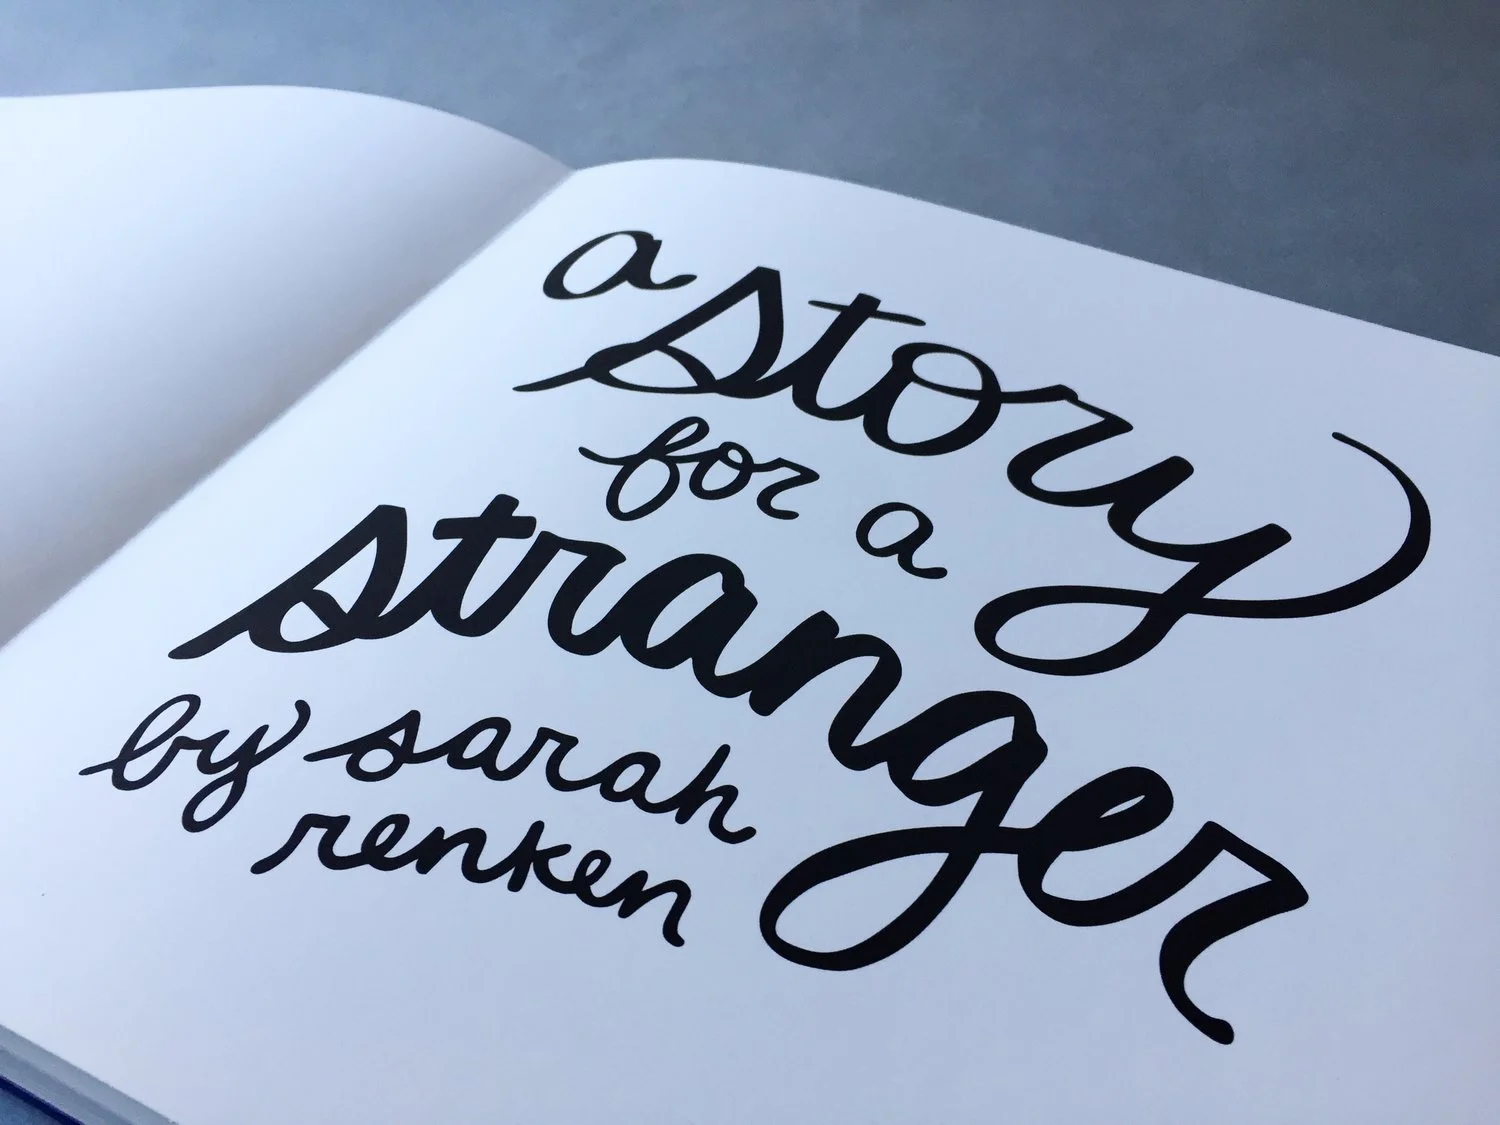 a story
for a
stranger
by sarah
renken